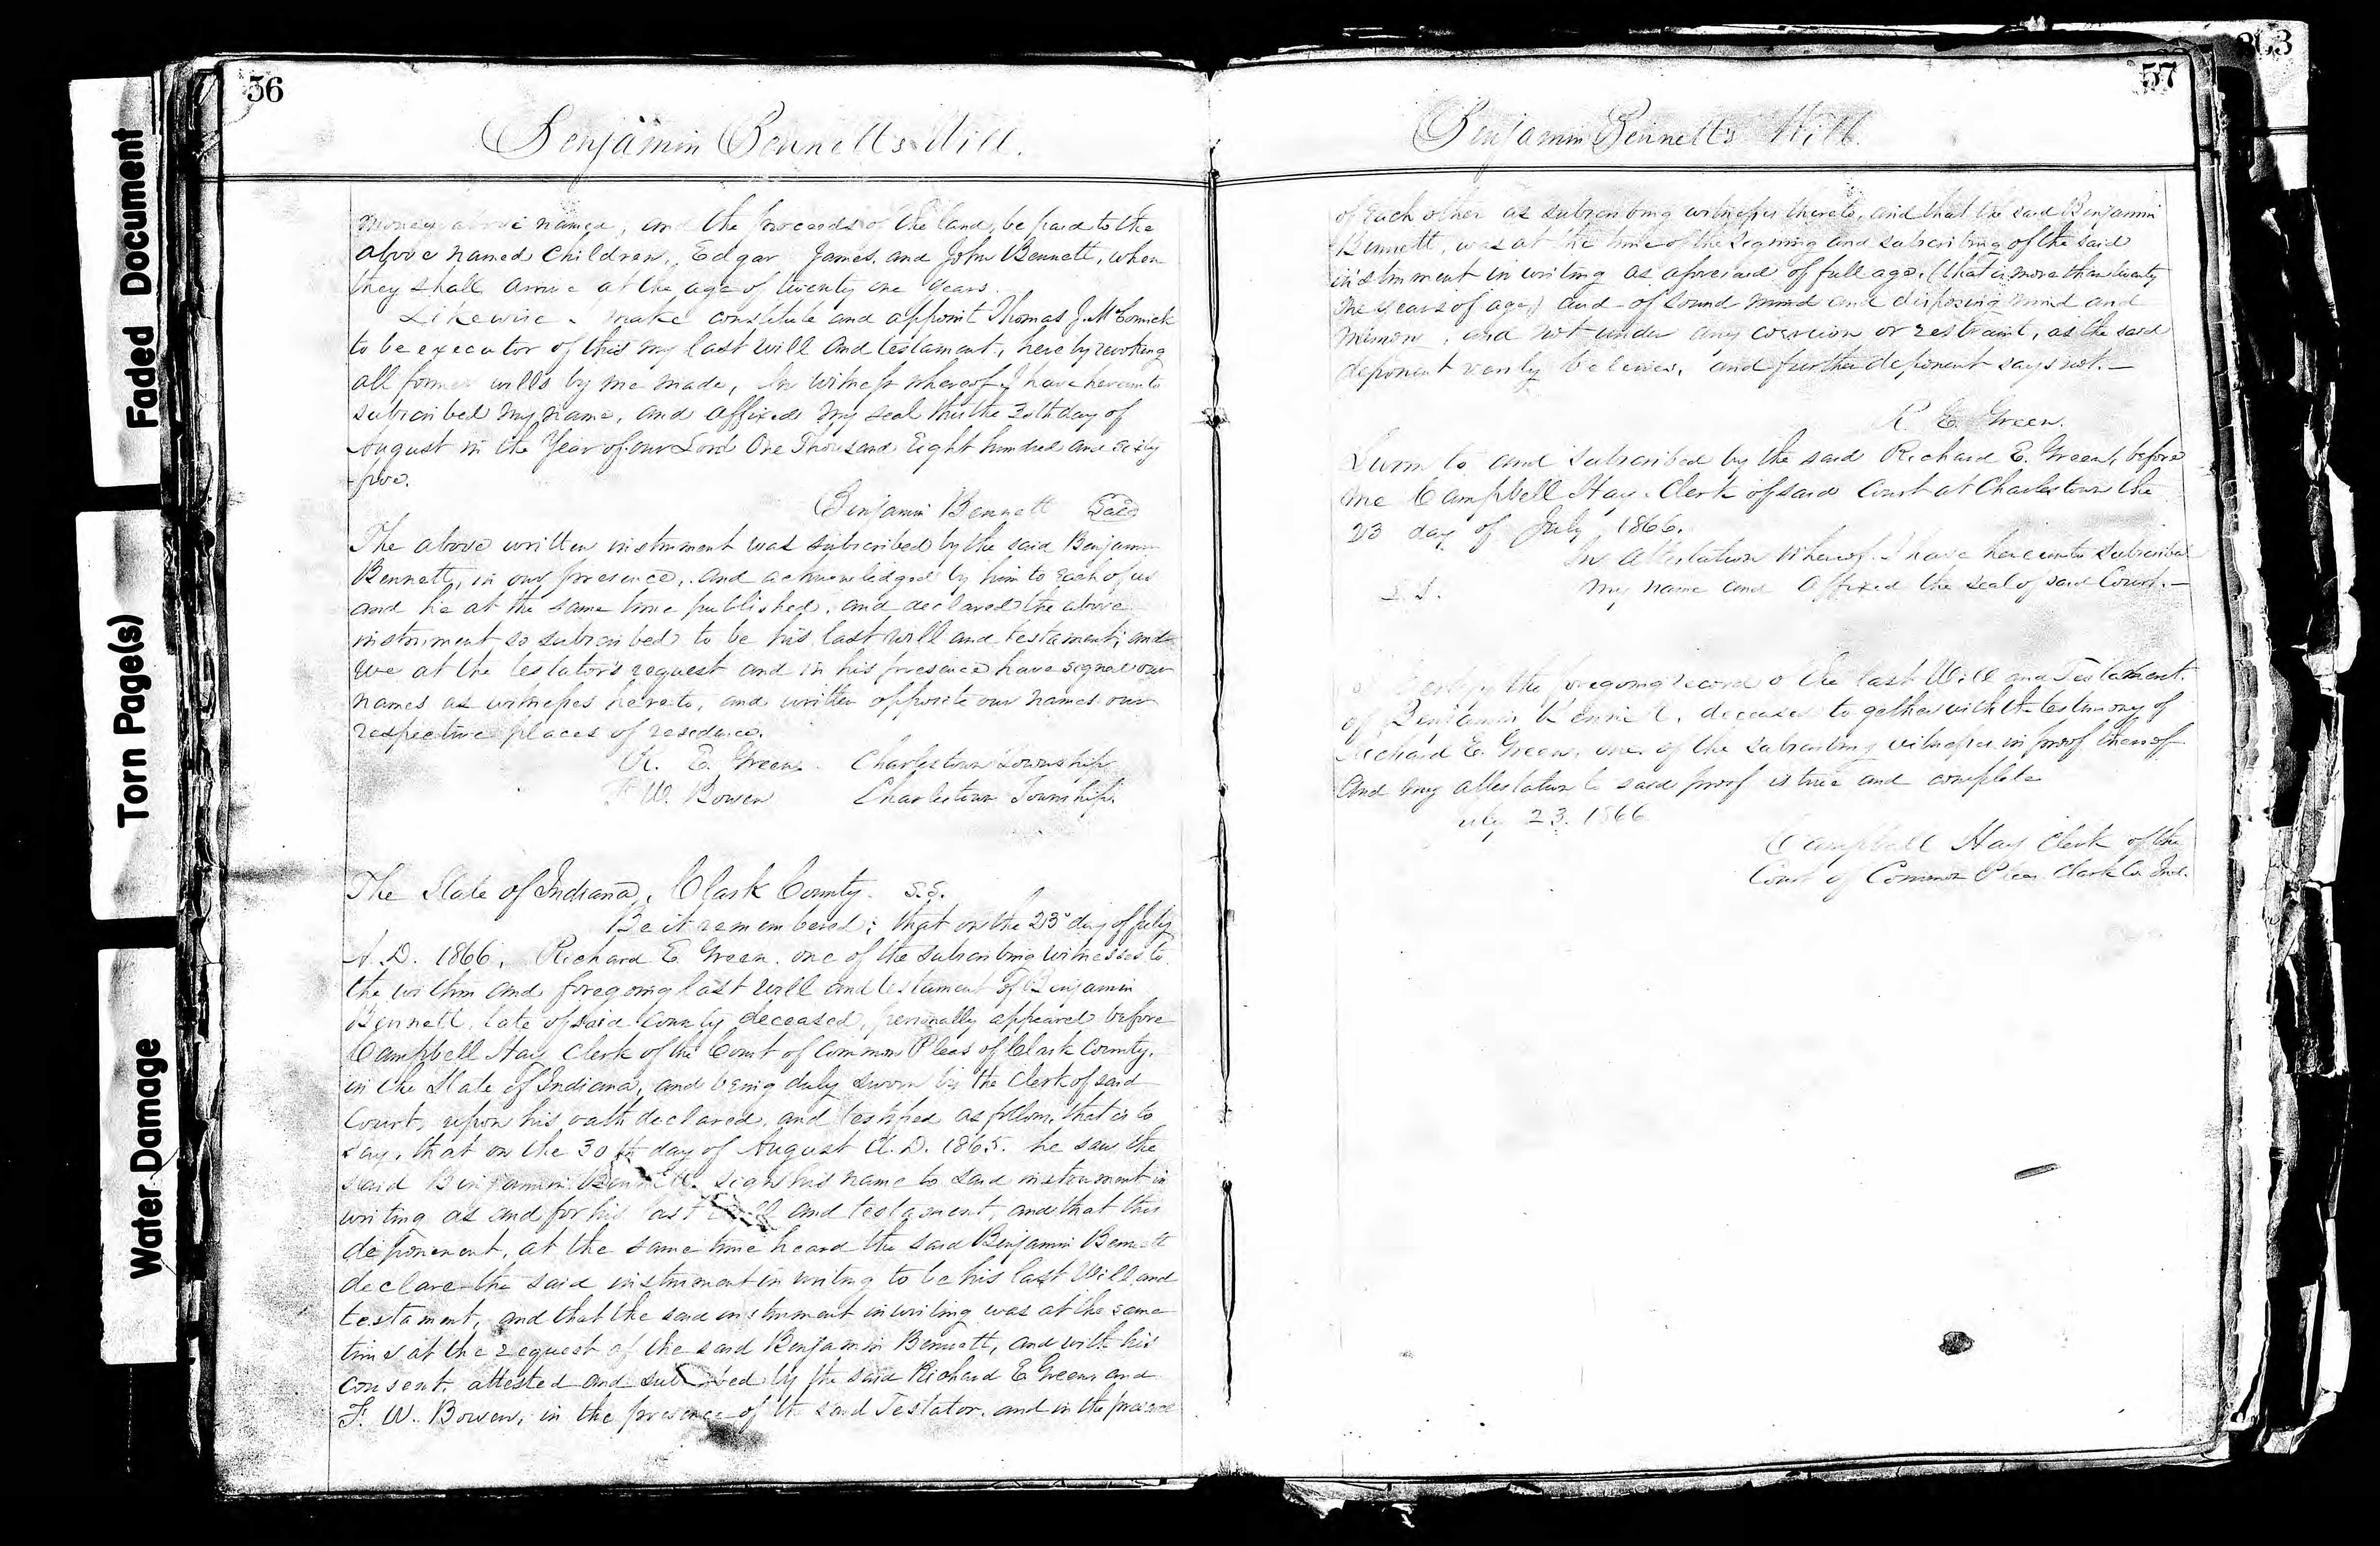 Faded Document
Torn Page(s)
Water Damage
56
Benjamin Bennett's Will.
money above named, and the proceeds of the land, be paid to the
above named children, Edgar James, and John Bennett, when
they shall arrive at the age of twenty one years.
Likewise I make constitute and appoint Thomas J. McCormick
to be executor of this my last will and testament, hereby revoking
all former wills by me made, In witness whereof I have hereunto
subscribed my name, and affixed my seal this the 30th day of
August in the Year of our Lord One Thousand Eight hundred and sixty
five.
Benjamin Bennett Seal
The above written instrument was subscribed by the said Benjamin
Bennett, in our presence, and acknowledged by him to each of us
and he at the same time published, and declared the above
instrument so subscribed to be his last will and testament; and
we at the testator's request and in his presence have signed our
names as witnesses hereto, and written opposite our names our
respective places of residence.
R. E. Green. Charlestown Township
F. W. Bowen Charlestown Township.
The State of Indiana, Clark County. S.S.
Be it remembered; that on the 23d day of July
A.D. 1866, Richard E. Green, one of the subscribing witnesses to
the within and foregoing last will and testament of Benjamin
Bennett, late of said County deceased, personally appeared before
Campbell Hay Clerk of the Court of Common Pleas of Clark County,
in the State of Indiana, and being duly sworn by the Clerk of said
Court, upon his oath declared, and testified as follows, that is to
say, that on the 30th day of August A.D. 1865. he saw the
said Benjamin Bennett sign his name to said instrument in
writing as and for his last will and testament, and that this
deponenent, at the same time heard the said Benjamin Bennett
declare the said instrument in writing to be his last Will and
testament, and that the said instrument in writing was at the same
time at the request of the said Benjamin Bennett, and with his
consent, attested and subscribed by the said Richard E Green and
F. W. Bowen, in the presence of the said Testator, and in the presence
203
57
Benjamin Bennett's Will.
of each other as subscribing witnesses thereto, and that the said Benjamin
Bennett, was at the time of the signing and subscribing of the said
instrument in writing as aforesaid of full age, (that is more than twenty
one years of age) and of sound mind and disposing mind and
memory, and not under any coercion or restraint, as the said
deponent verily believes, and further deponent says not.—
R. E. Green.
Sworn to and subscribed by the said Richard E. Green, before
me Campbell Hay, Clerk of said Court at Charlestown the
23 day of July 1866.
In attestation whereof I have hereunto subscribed
L.S. my name and affixed the seal of said Court.—
certify the foregoing record of the last Will and Testament.
of Benjamin Bennett, deceased together with the testimony of
Richard E. Green, one of the subscribing witnesses in proof thereof
and my attestation to said proof is true and complete
July 23. 1866
Campbell Hay Clerk of the
Court of Common Pleas Clark Co. Ind.